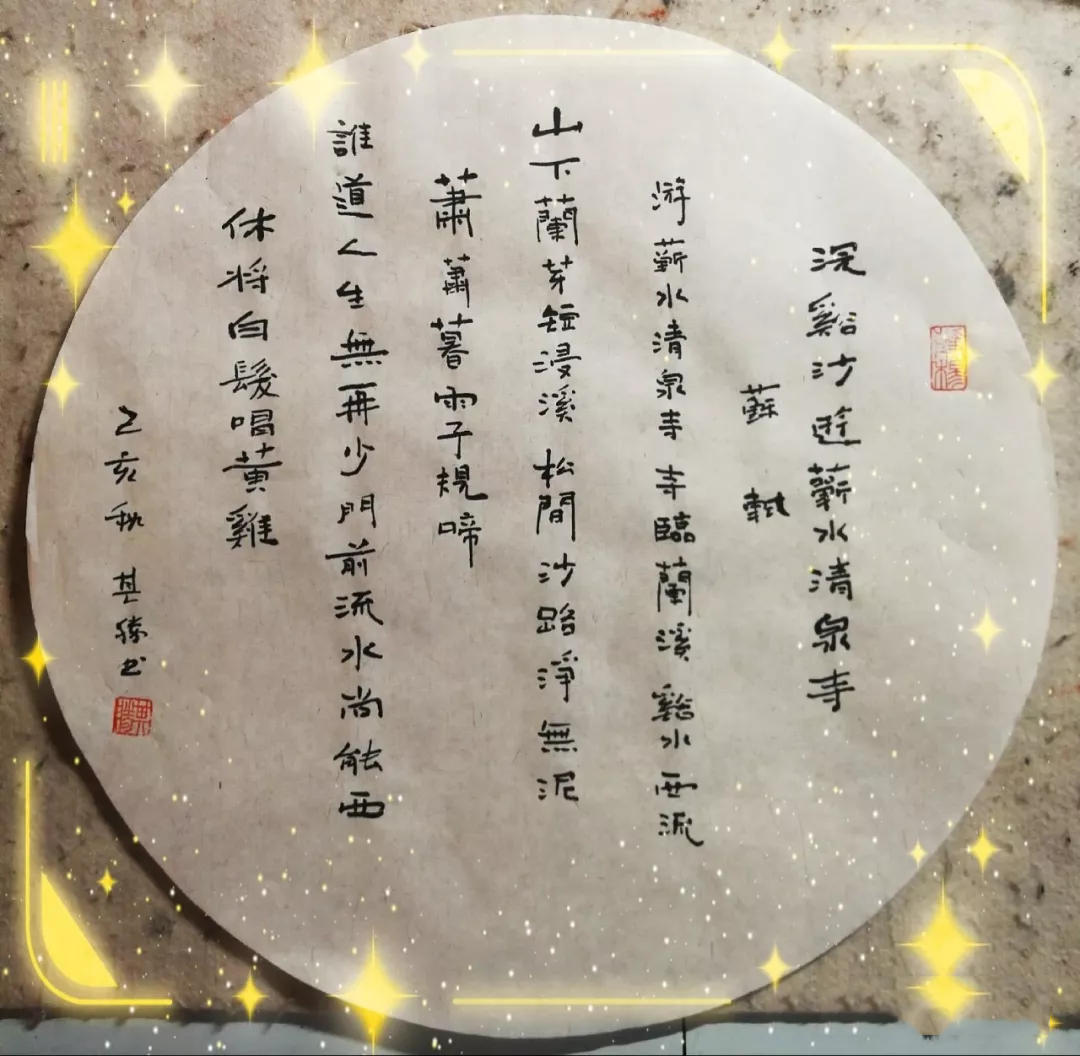 深谿沙 遊蘄水清泉寺
蘇軾
游蘄水清泉寺 寺臨蘭溪 谿水西流
山下蘭芽短浸溪 松間沙路淨無泥
蕭蕭暮雨子規啼
誰道人生無再少 門前流水尚能西
休將白髮唱黃雞
己亥秋 其勝书